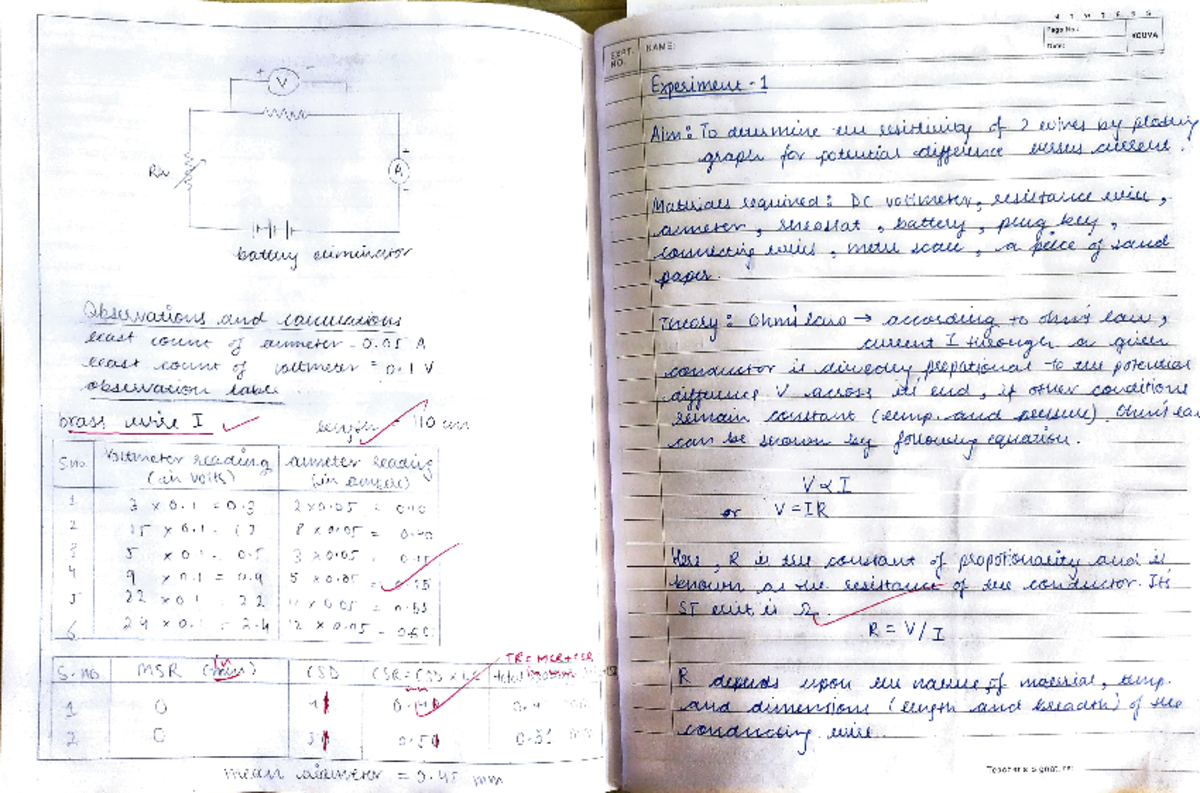 V
Rh
A
battery eliminator
Observations and calculations
least count of ammeter - 0.05 A
least count of voltmeter = 0.1 V
observation table
brass wire I
length = 110 cm
S.no Voltmeter reading (in volts) ammeter reading (in ampere)
1 3 x 0.1 = 0.3 2 x 0.05 = 0.10
2 15 x 0.1 8 x 0.05 = 0.40
3 5 x 0.1 = 0.5 3 x 0.05 = 0.15
4 9 x 0.1 = 0.9 5 x 0.05 =
5 22 x 0.1 = 2.2 11 x 0.05 = 0.55
6 24 x 0.1 = 2.4 12 x 0.05 =
TR = MSR + CSR
S.no MSR CSD CSR = CSD x LC total
1 0
2 0 0.51
mean diameter = 0.45 mm
EXPT. NO. NAME:
Page No.:
Date:
YOUVA
Experiment - 1
Aim: To determine the resistivity of 2 wires by ploting
graph for potential difference versus current.
Materials required: DC voltmeter, resistance wire,
ammeter, rheostat, battery, plug key,
connecting wires, metre scale, a peice of sand
paper.
Theory: Ohm's law → according to ohm's law,
current I through a given
conductor is directly propotional to the potential
difference V across its end, if other conditions
remain constant (temp. and pressure). Ohm's law
can be shown by following equation.
V ∝ I
or V = IR
Here, R is the constant of propotionality and is
known as the resistance of the conductor. Its
SI unit is Ω.
R = V/I
R depends upon the nature of material, temp.
and dimensions (length and breadth) of the
conducting wire.
Teacher's Signature: